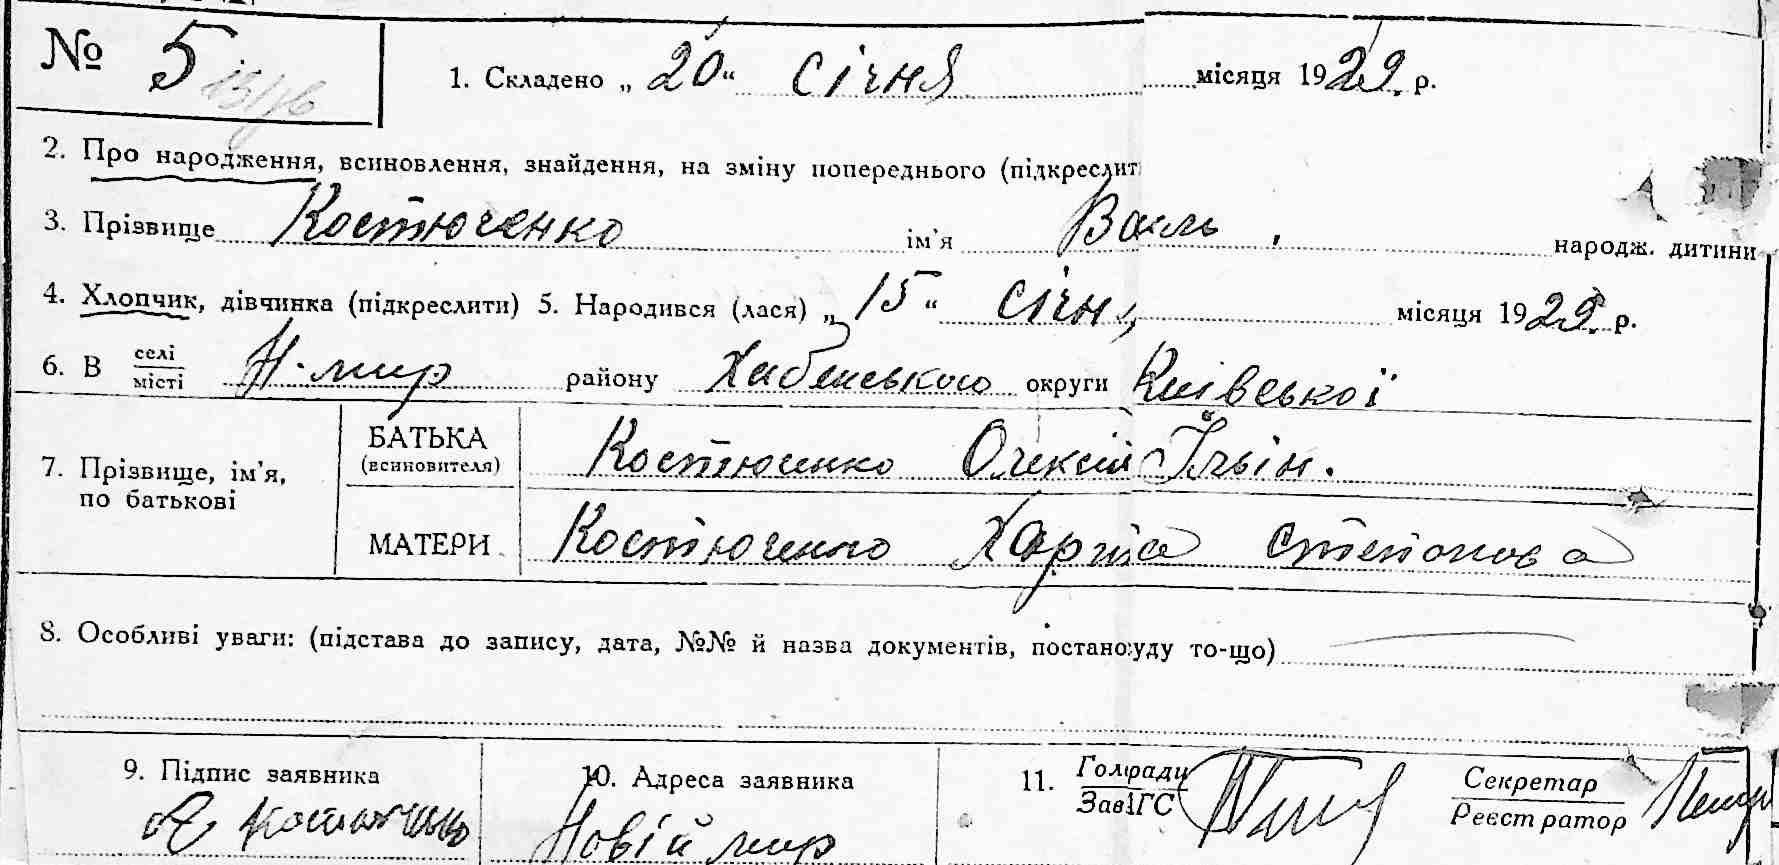 № 5
1. Складено „ 20 “ Січня місяця 1929 р.
2. Про народження, всиновлення, знайдення, на зміну попереднього (підкреслит
3. Прізвище Костюченко ім'я Василь народж. дитини
4. Хлопчик, дівчинка (підкреслити) 5. Народився (лася) „ 15 “ Січня місяця 1929. р.
6. В селі місті Н-мир району Хабенського округи Київської
7. Прізвище, ім'я, по батькові
БАТЬКА (всиновителя) Костюченко Олексій Ільін.
МАТЕРИ Костюченко Харитя Степанова
8. Особливі уваги: (підстава до запису, дата, №№ й назва документів, постано:уду то-що)
9. Підпис заявника
10. Адреса заявника
11. Голради ЗавІГС
Секретар Реєстратор
О Костюченко
Новій мир